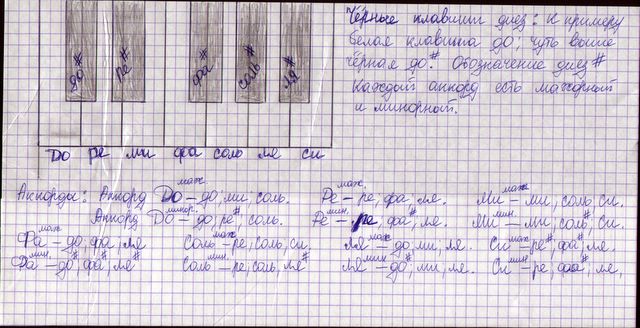 до# ре# фа# соль# ля#
До ре ми фа соль ля си
Чёрные клавиши диез: к примеру
белая клавиша до; чуть выше
чёрная до#. Обозначение диез #
Каждый аккорд есть мажорный
и минорный.
Аккорды: Аккорд До маж. – до, ми, соль. Ре маж. – ре, фа, ля. Ми маж – ми, соль, си.
Аккорд До минор. – до, ре#, соль. Ре мин. – ре, фа#, ля. Ми мин. – ми, соль#, си.
Фа маж – до, фа, ля Соль маж – ре, соль, си. Ля маж – до, ми, ля. Си маж – ре#, фа#, ля.
Фа мин. – до#, фа#, ля# Соль мин. – ре, соль, ля# Ля мин – до#, ми, ля. Си мин – ре, фа#, ля,